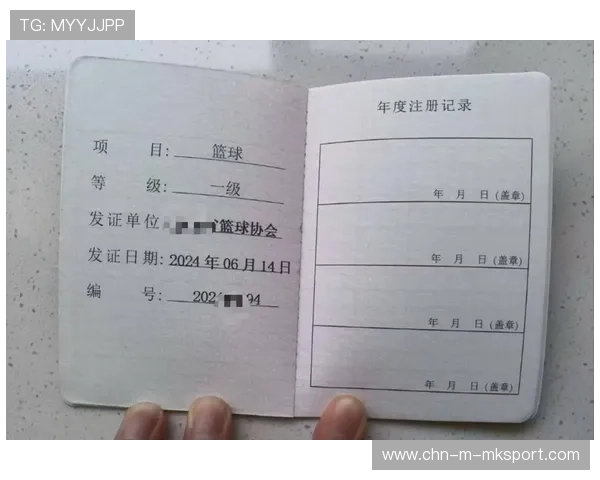 TG: MYYJJPP
项 目: 篮球
等 级: 一级
发证单位 篮球协会
发证日期: 2024 年 06 月 14 日
编 号: 202 94
年度注册记录
年 月 日(盖章)
年 月 日(盖章)
年 月 日(盖章)
年 月 日(盖章)
www.chn-m-mksport.com